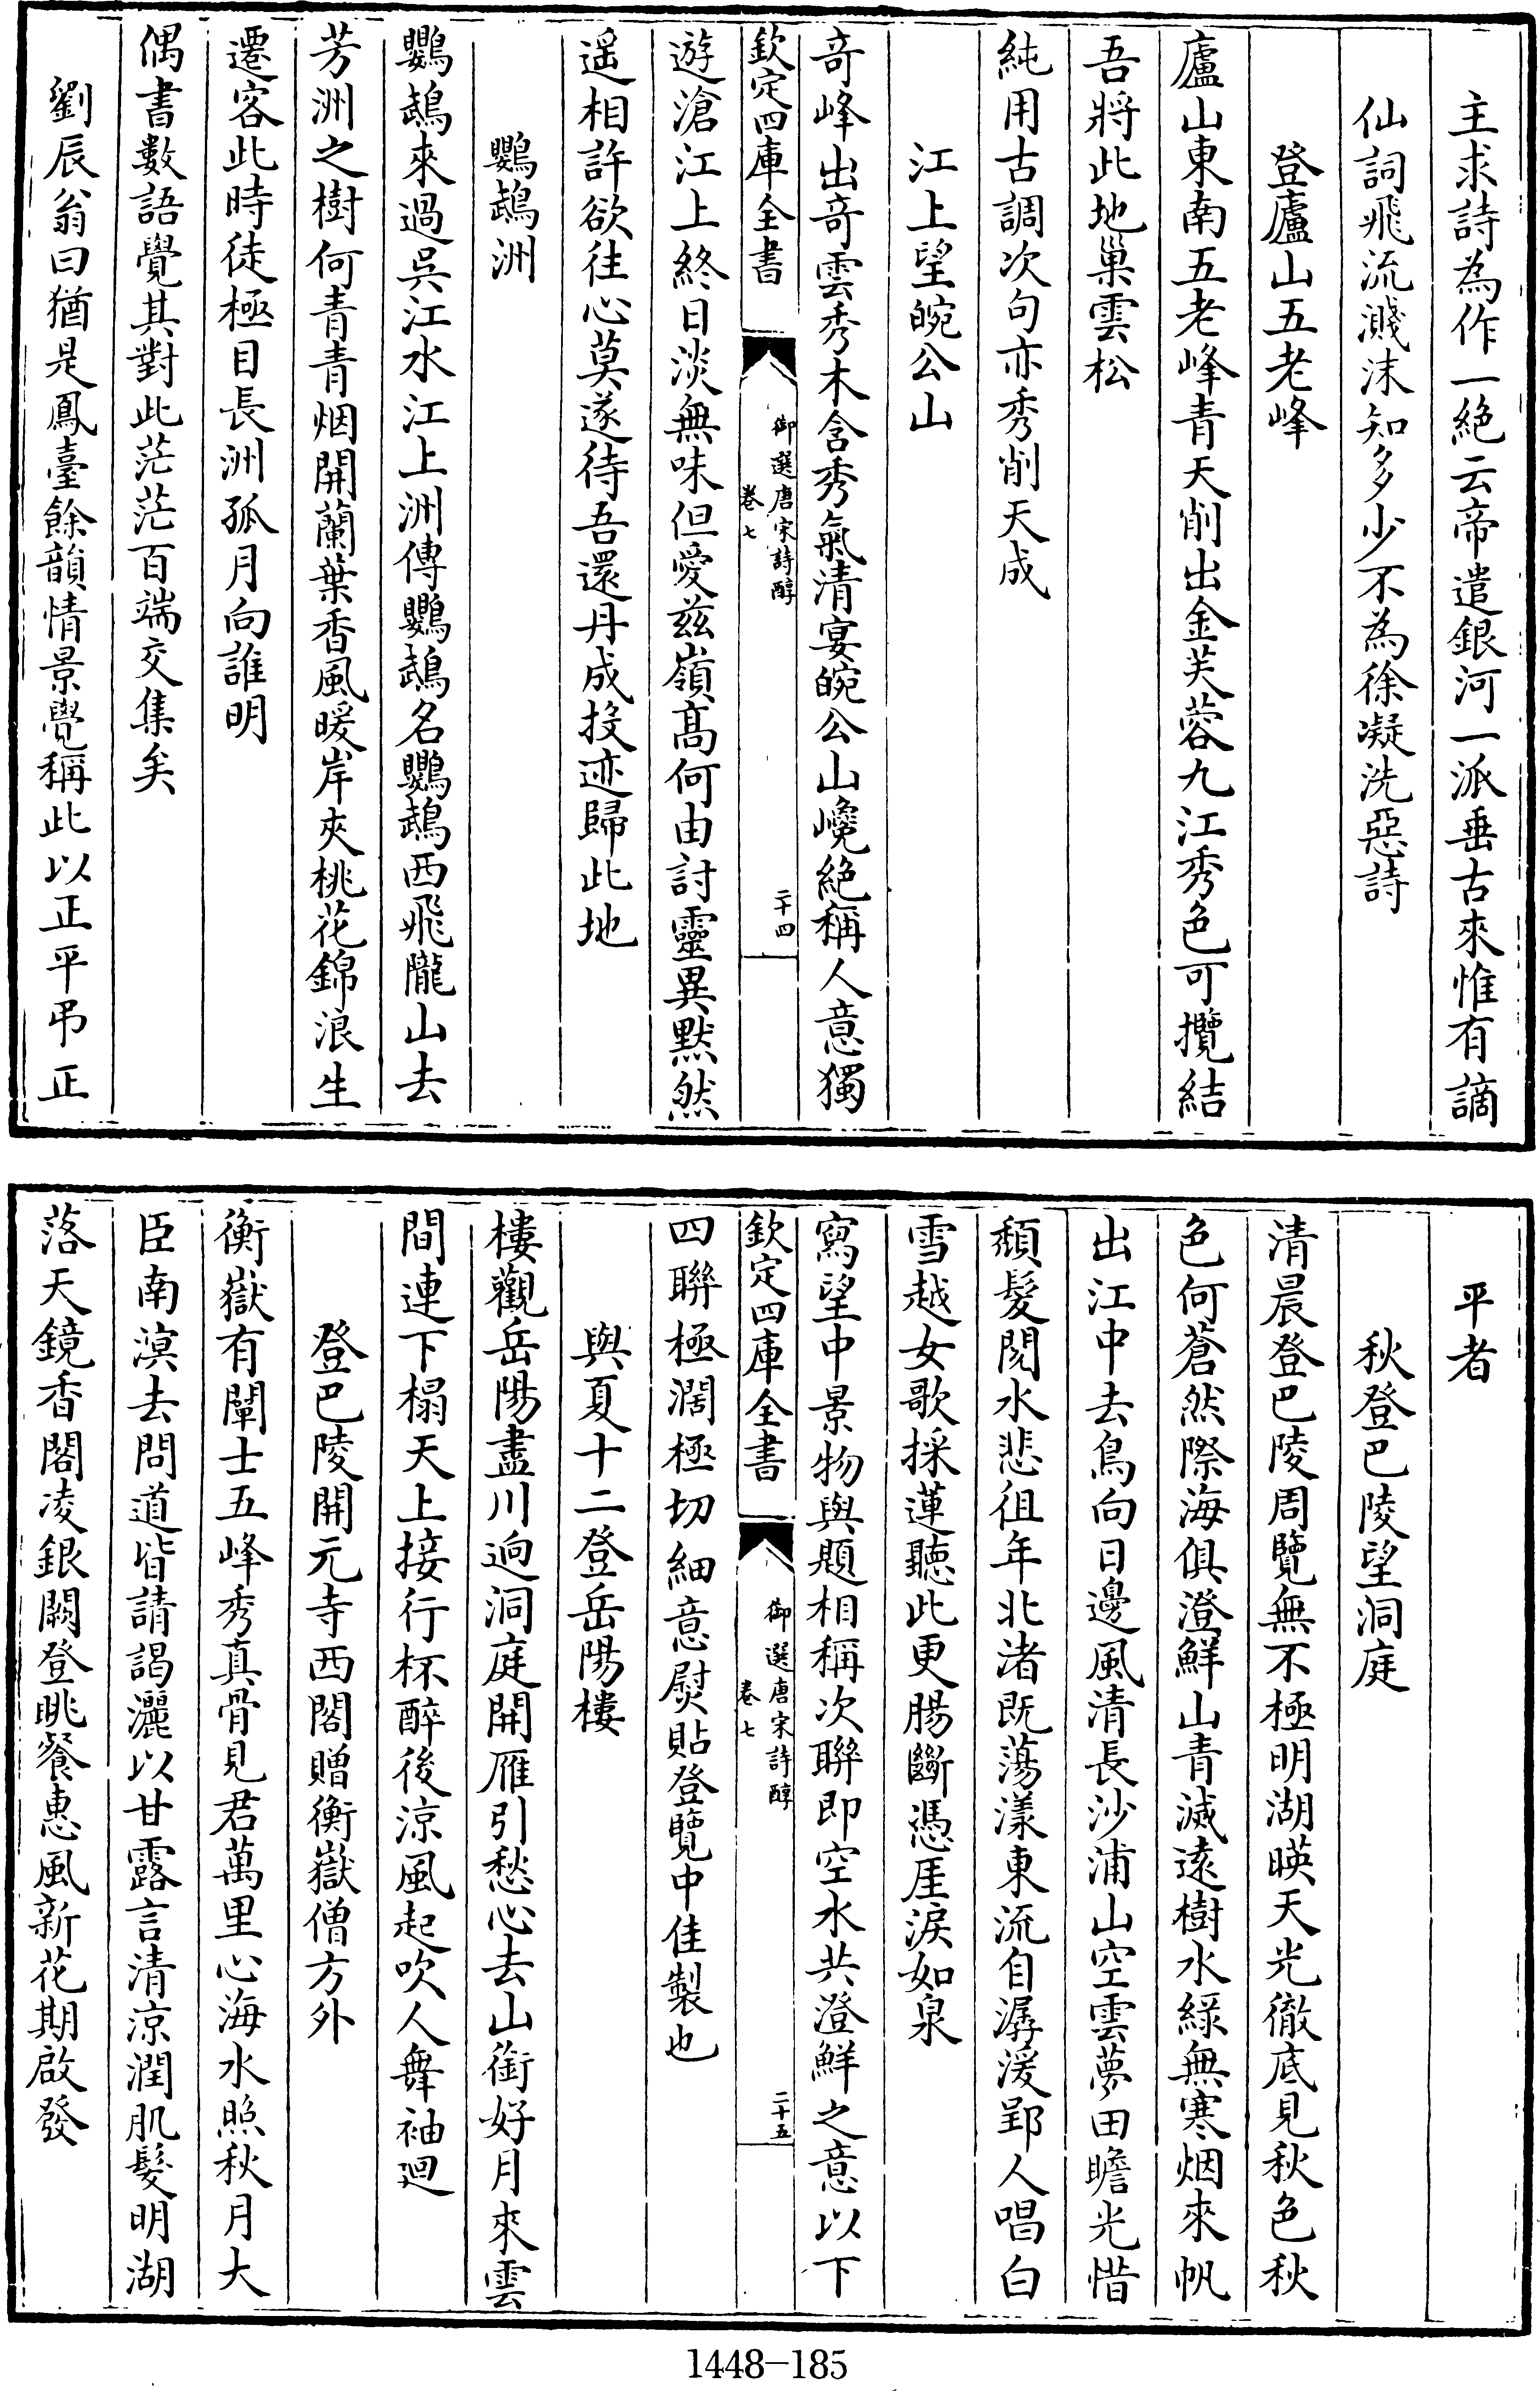 主求詩為作一絶云帝遣銀河一派垂古來惟有謫
仙詞飛流濺沫知多少不為徐凝洗惡詩
登廬山五老峰
廬山東南五老峰青天削出金芙蓉九江秀色可攬結
吾將此地巢雲松
純用古調次句亦秀削天成
江上望皖公山
奇峰出奇雲秀木含秀氣清宴皖公山巉絶稱人意獨
欽定四庫全書
御選唐宋詩醇
卷七
二十四
遊滄江上終日淡無味但愛兹嶺髙何由討靈異黙然
遥相許欲往心莫遂待吾還丹成投迹歸此地
鸚鵡洲
鸚鵡來過吳江水江上洲傳鸚鵡名鸚鵡西飛隴山去
芳洲之樹何青青烟開蘭葉香風暖岸夾桃花錦浪生
遷客此時徒極目長洲孤月向誰明
偶書數語覺其對此茫茫百端交集矣
劉辰翁曰猶是鳳臺餘韻情景覺稱此以正平弔正
平者
秋登巴陵望洞庭
清晨登巴陵周覽無不極明湖暎天光徹底見秋色秋
色何蒼然際海俱澄鮮山青滅遠樹水緑無寒烟來帆
出江中去鳥向日邊風清長沙浦山空雲夢田瞻光惜
頹髮閱水悲徂年北渚既蕩漾東流自潺湲郢人唱白
雪越女歌採蓮聽此更腸斷憑厓淚如泉
寫望中景物與題相稱次聯即空水共澄鮮之意以下
欽定四庫全書
御選唐宋詩醇
卷七
二十五
四聯極濶極切細意熨貼登覽中佳製也
與夏十二登岳陽樓
樓觀岳陽盡川逈洞庭開雁引愁心去山銜好月來雲
間連下榻天上接行杯醉後涼風起吹人舞袖廻
登巴陵開元寺西閣贈衡嶽僧方外
衡嶽有闡士五峰秀真骨見君萬里心海水照秋月大
臣南溟去問道皆請謁灑以甘露言清涼潤肌髮明湖
落天鏡香閣凌銀闕登眺餐惠風新花期啟發
1448-185